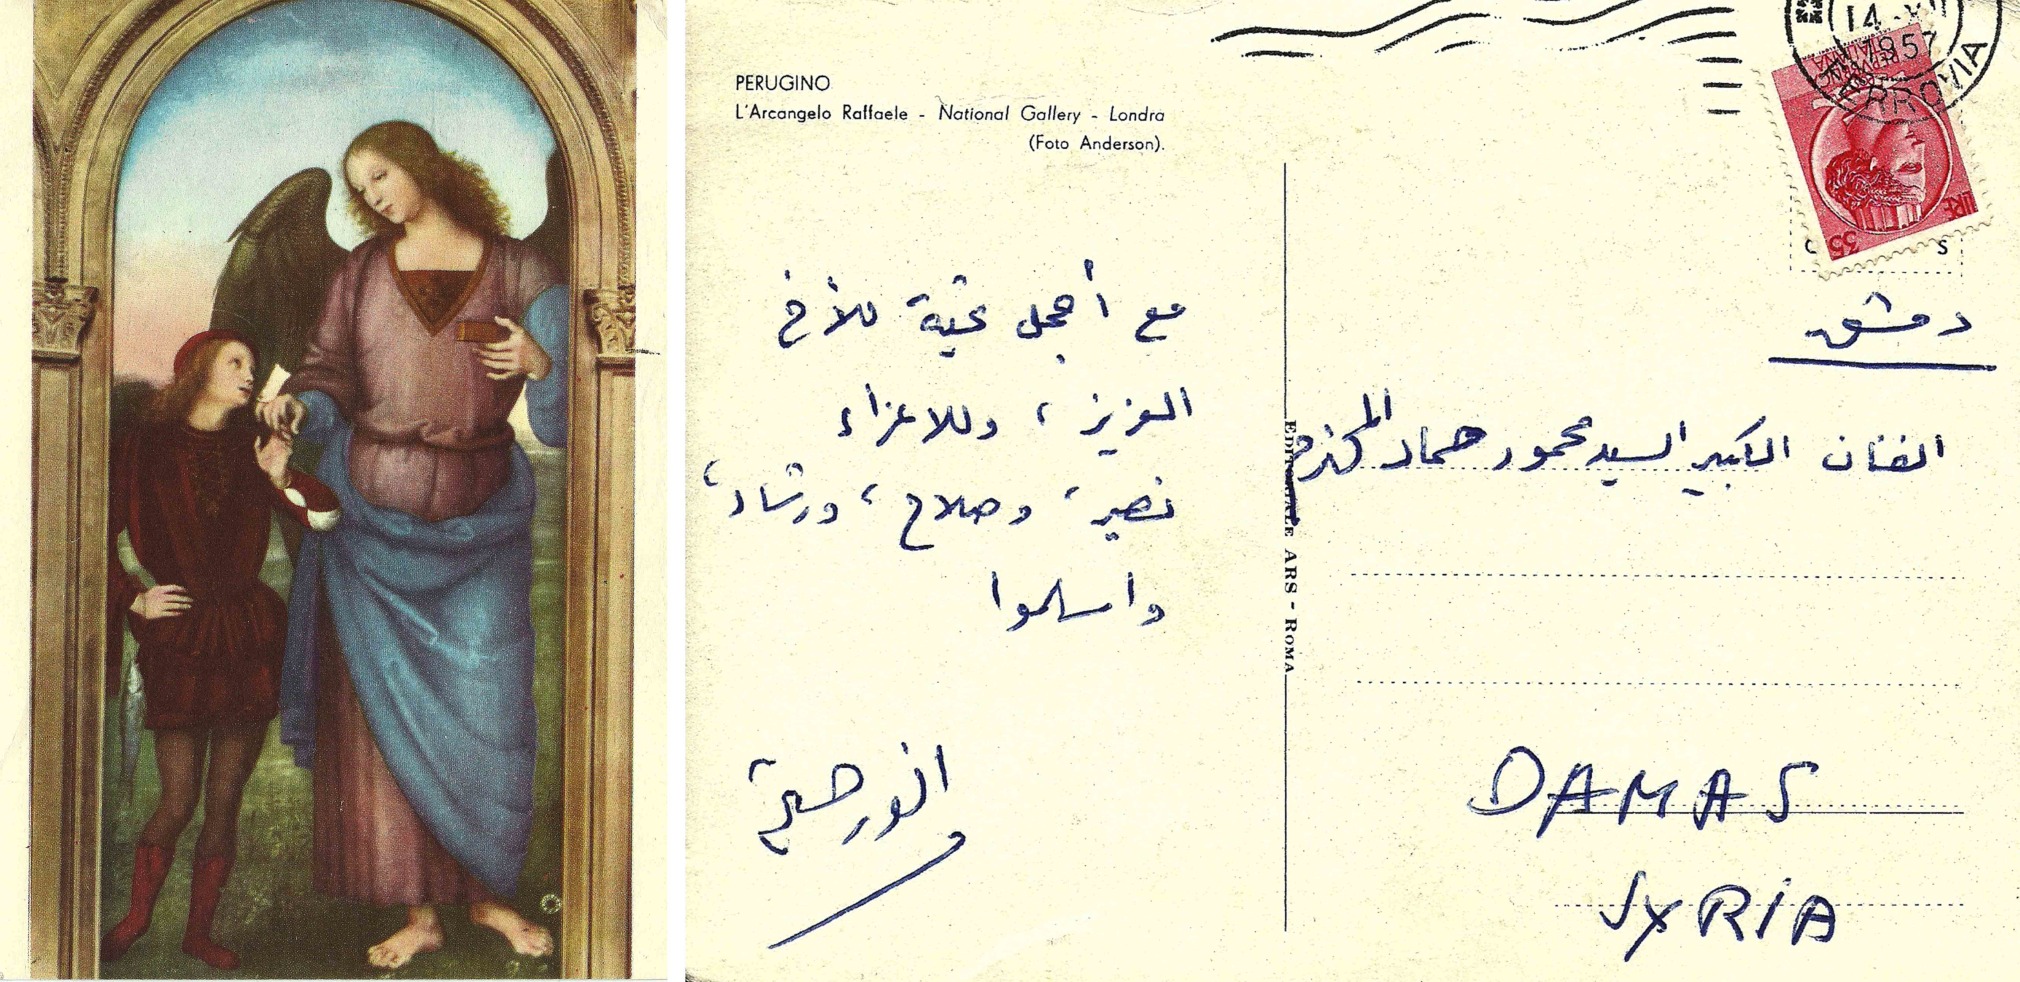 PERUGINO
L'Arcangelo Raffaele - National Gallery - Londra
(Foto Anderson).
مع أجمل تحية للأخ
العزيز ، وللاعزاء
نصير ، وصلاح ، ورشاد ،
واسلموا
انور
EDITORIALE ARS - ROMA
14 XII
1957
FERROVIA
LIRE
35
S
دمشق
الفنان الكبير السيد محمود حماد المحترم
DAMAS
SYRIA